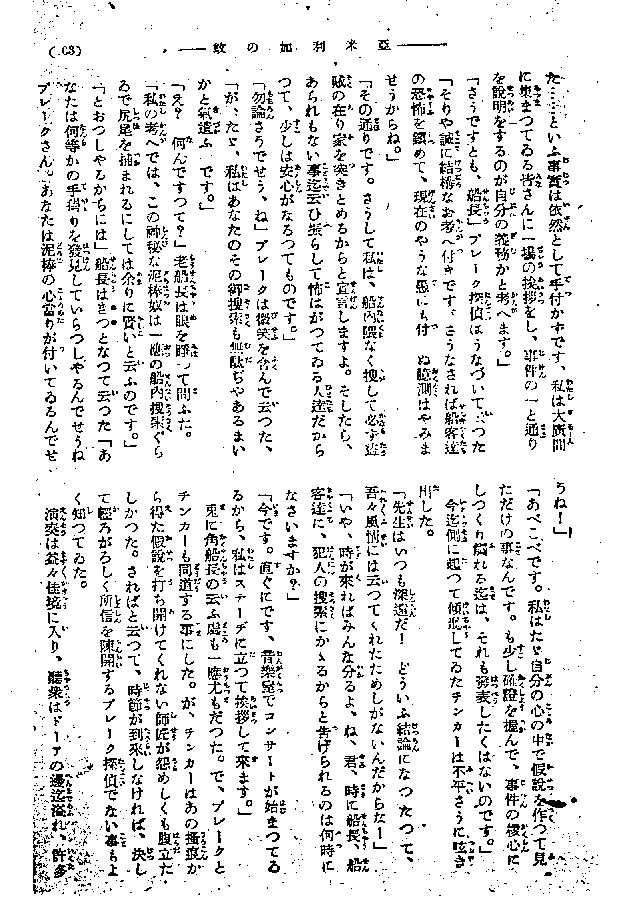 (63)
亞米利加の蚊
た……といふ事實は依然として手付かずです、私は大廣間
に集まつてゐる皆さんに一場の挨拶をし、事件の一と通り
を說明をするのが自分の義務かと考へます。」
「さうですとも、船長」ブレーク探偵はうなづいて云つた
「そりや誠に結構なお考へ付きです。さうなされば船客達
の恐怖を鎭めて、現在のやうな愚にも付 ぬ臆測はやみま
せうからね。」
「その通りです。さうして私は、船內隈なく搜して必ず盜
賊の在り家を突きとめるからと宣言しますよ。そしたら、
あられもない事迄云ひ振らして怖はがつてゐる人達だから
つて、少しは安心がなるつてものです。」
「勿論さうでせう、ね」ブレークは微笑を含んで云つた、
「が、たゞ、私はあなたのその御搜索も無駄ぢやあるまい
かと氣遣ふ です。」
「え? 何んですつて?」老船長は眼を瞠つて問ふた。
「私の考へでは、この神秘な泥棒奴は一磧の船內搜索ぐら
ゐで尻尾を捕まれるにしては余りに賢いと云ふのです。」
「とおつしやるからには」船長はきつとなつて云つた「あ
なたは何等かの手掛りを發見していらつしやるんでせうね
ブレークさん。あなたは泥棒の心當りが付いてゐるんでせ
うね!」
「あべこべです。私はたゞ自分の心の中で假說を作つて見
ただけの事なんです。も少し確證を握んで、事件の核心に
しつくり觸れる迄は、それも發表したくはないのです。」
今迄側に起つて傾聽してゐたチンカーは不平さうに呟き
出した。
「先生はいつも深遠だ! どういふ結論になつたつて、
吾々風情には云つてくれたためしがないんだからなー」
「いや、時が來ればみんな分るよ、ね、君、時に船長、船
客達に、犯人の搜索にかゝるからと告げられるのは何時に
なさいますか?」
「今です。直ぐにです、音樂室でコンサートが始まつてゐ
るから、私はステーヂに立つて挨拶して來ます。」
兎に角船長の云ふ處も一應尤もだつた。で、ブレークと
チンカーも同道する事にした。が、チンカーはあの搔痕か
ら得た假說を打ち開けてくれない師匠が怨めしくも腹立た
しかつた。さればと云つて、時節が到來しなければ、決し
て輕ろがろしく所信を陳開するブレーク探偵でない事もよ
く知つてゐた。
演奏は益々佳境に入り、聽衆はドーアの邊迄溢れ、許多